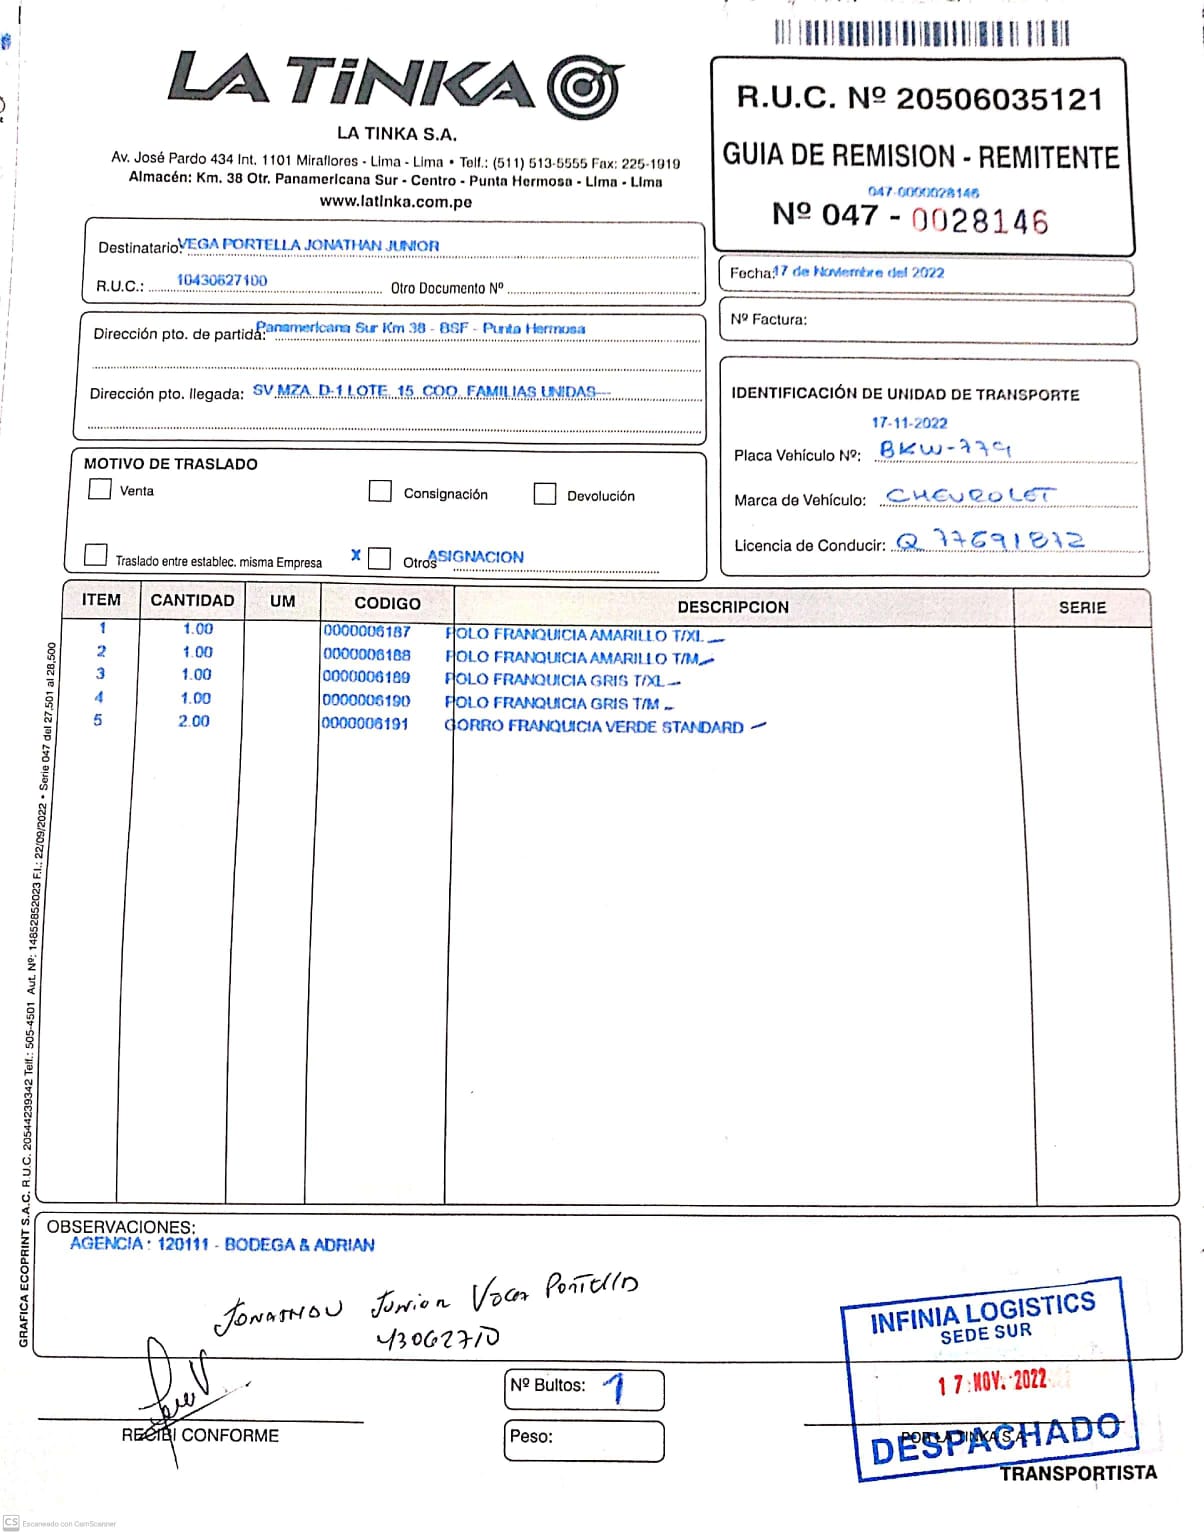 LA TiNKA
LA TINKA S.A.
Av. José Pardo 434 Int. 1101 Miraflores - Lima - Lima • Telf.: (511) 513-5555 Fax: 225-1919
Almacén: Km. 38 Otr. Panamericana Sur - Centro - Punta Hermosa - Lima - Lima
www.latinka.com.pe
R.U.C. Nº 20506035121
GUIA DE REMISION - REMITENTE
047-0000028146
Nº 047 - 0028146
Destinatario: VEGA PORTELLA JONATHAN JUNIOR
R.U.C.: 10430627100 Otro Documento Nº
Fecha: 17 de Noviembre del 2022
Nº Factura:
Dirección pto. de partida: Panamericana Sur Km 38 - BSF - Punta Hermosa
Dirección pto. llegada: SV MZA D-1 LOTE 15 COO FAMILIAS UNIDAS---
IDENTIFICACIÓN DE UNIDAD DE TRANSPORTE
17-11-2022
Placa Vehículo Nº: BKW-779
Marca de Vehículo: CHEVROLET
Licencia de Conducir: Q 77691872
MOTIVO DE TRASLADO
Venta Consignación Devolución
Traslado entre establec. misma Empresa X Otros ASIGNACION
ITEM CANTIDAD UM CODIGO DESCRIPCION SERIE
1 1.00 0000006187 POLO FRANQUICIA AMARILLO T/XL
2 1.00 0000006188 POLO FRANQUICIA AMARILLO T/M
3 1.00 0000006189 POLO FRANQUICIA GRIS T/XL
4 1.00 0000006190 POLO FRANQUICIA GRIS T/M
5 2.00 0000006191 GORRO FRANQUICIA VERDE STANDARD
GRAFICA ECOPRINT S.A.C. R.U.C. 20544239342 Telf.: 505-4501 Aut. Nº: 14852852023 F.I.: 22/09/2022 • Serie 047 del 27,501 al 28,500
OBSERVACIONES:
AGENCIA : 120111 - BODEGA & ADRIAN
Jonathan Junior Vega Portella
43062710
RECIBÍ CONFORME
Nº Bultos: 1
Peso:
INFINIA LOGISTICS
SEDE SUR
17 NOV. 2022
DESPACHADO
POR LA TINKA S.A.
TRANSPORTISTA
CS Escaneado con CamScanner